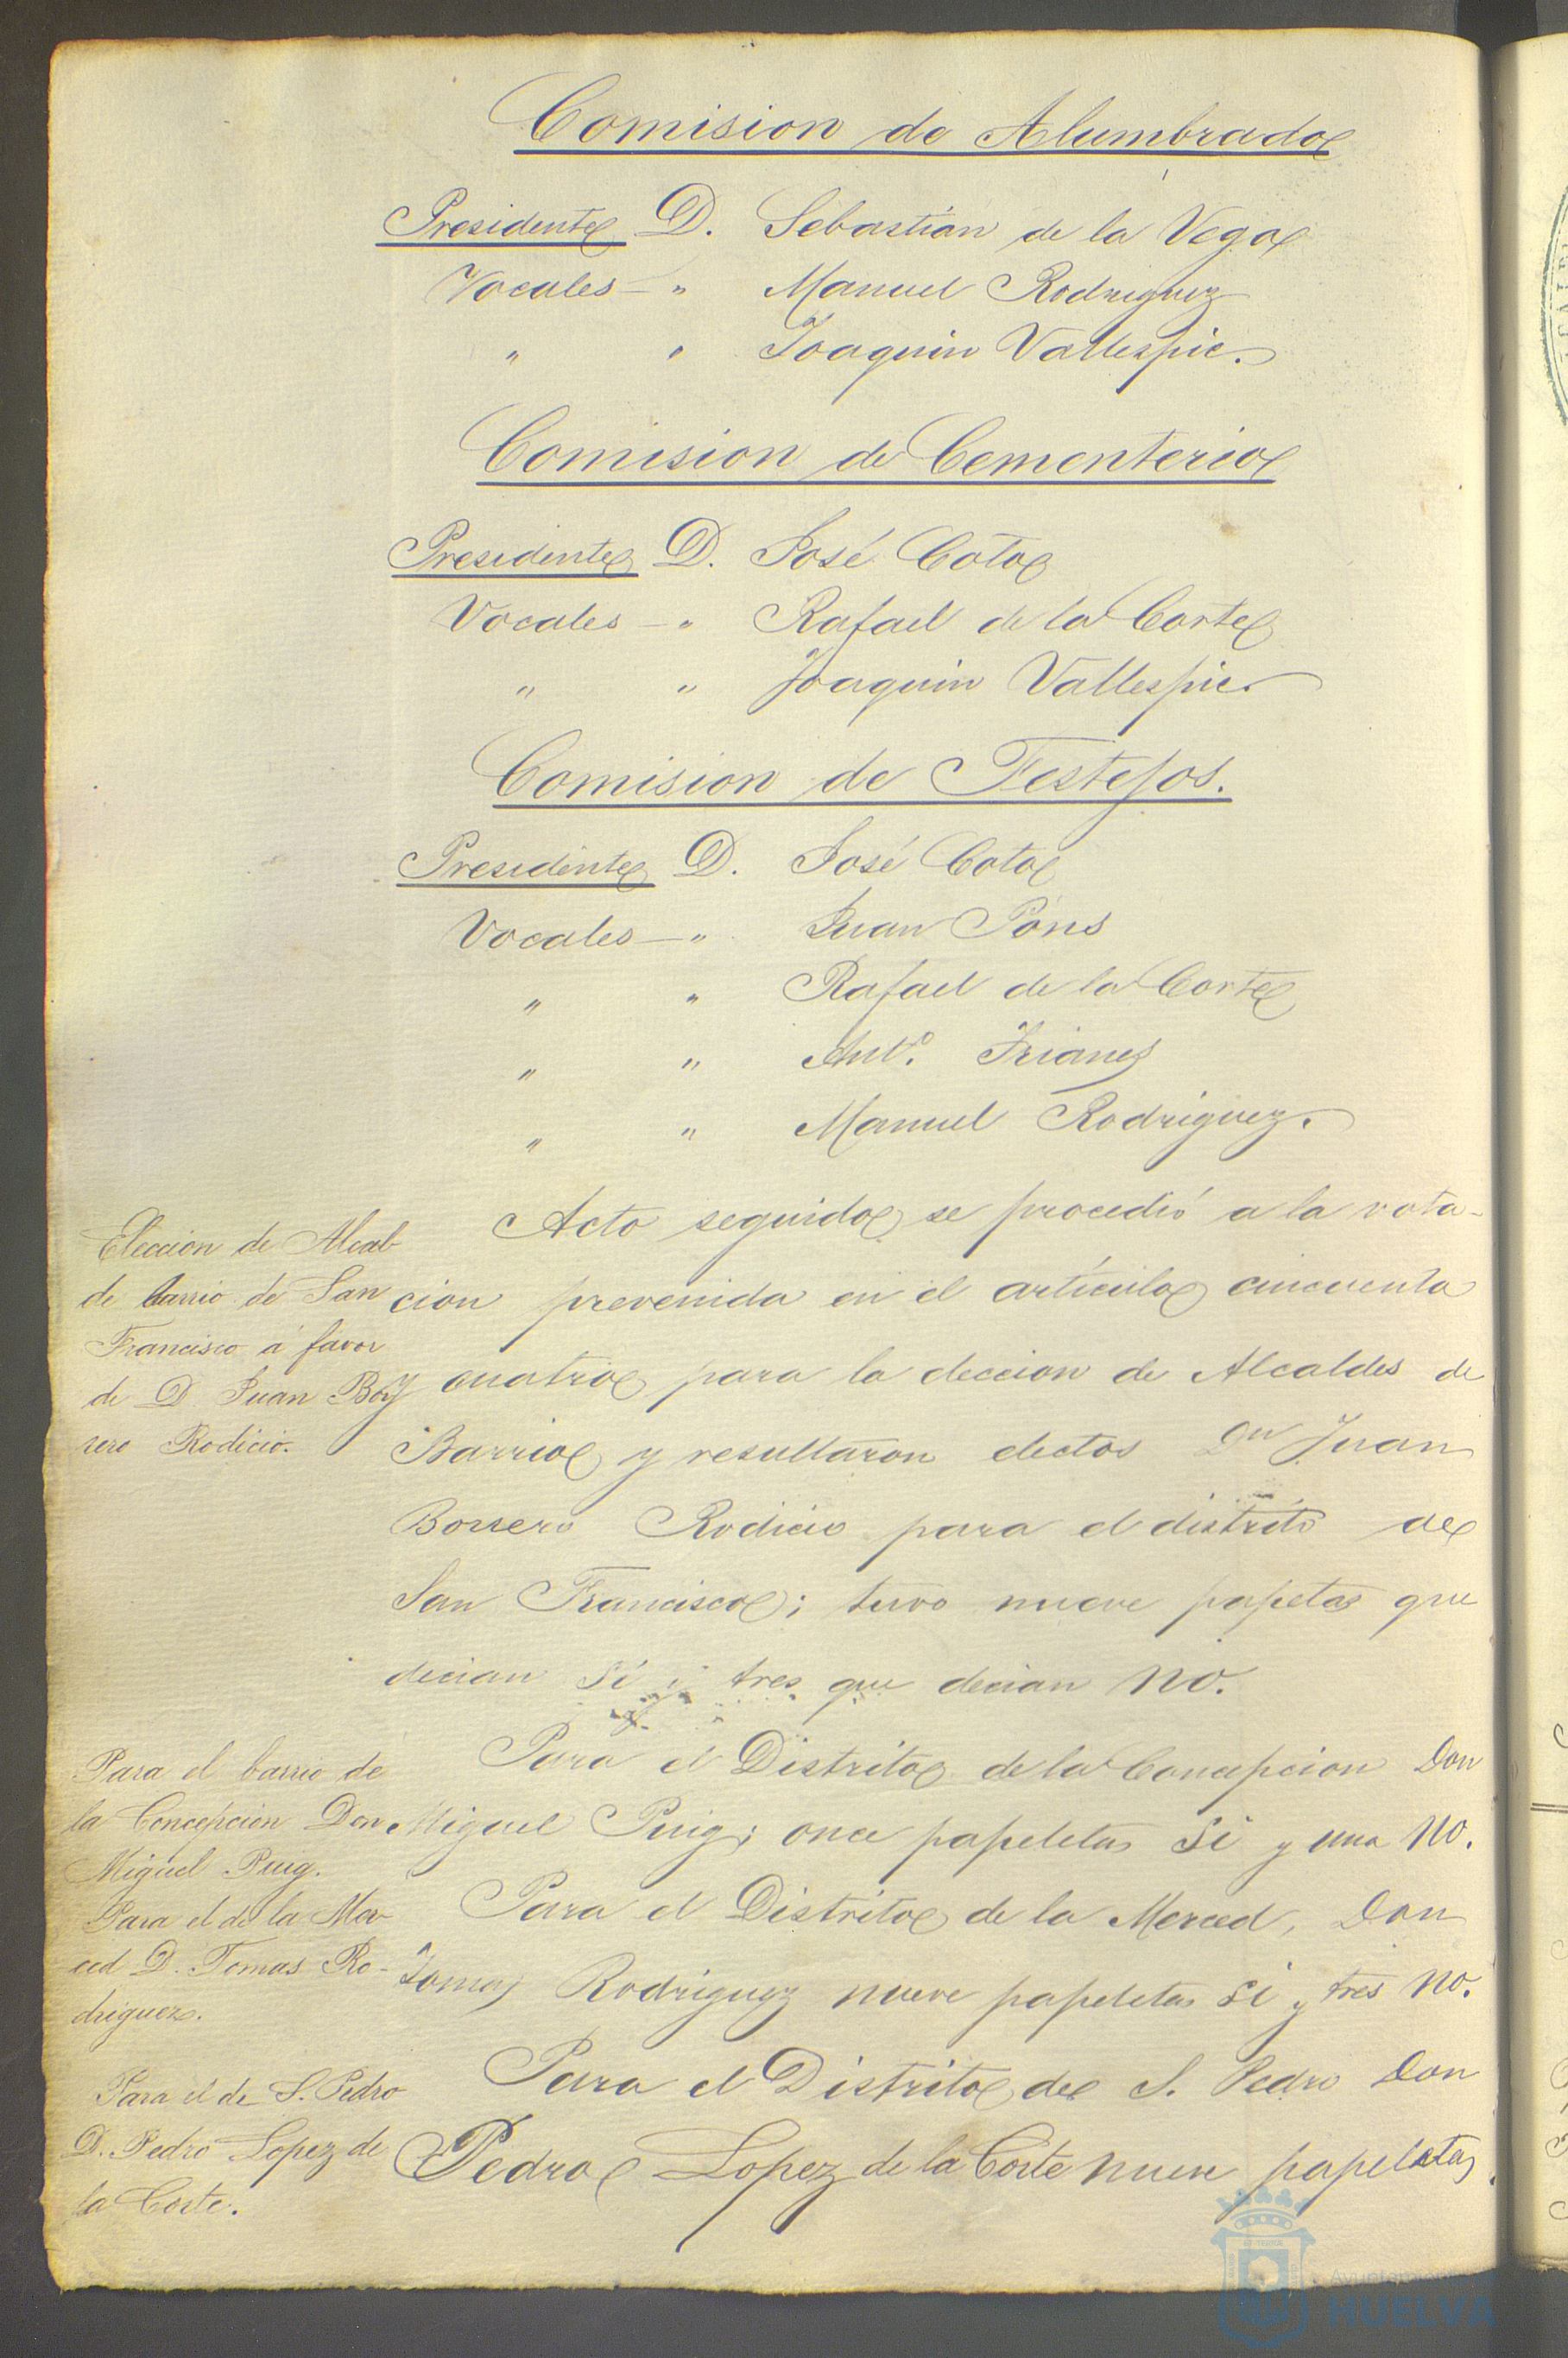 Comision de Alumbrado
Presidente D. Sebastián de la Vega
Vocales — " Manuel Rodriguez
" " Joaquin Vallespir.
Comision de Cementerio
Presidente D. José Coto
Vocales — " Rafael de la Corte
" " Joaquin Vallespir
Comision de Festejos.
Presidente D. José Coto
Vocales — " Juan Pons
" " Rafael de la Corte
" " Antº. Trianes
" " Manuel Rodriguez.
Eleccion de Alcal
de barrio de San
Francisco á favor
de D Juan Bor
rero Rodicio.
Acto seguido se procedió a la vota-
cion prevenida en el artículo cincuenta
cuatro para la eleccion de Alcaldes de
Barrio y resultaron electos Dn Juan
Borrero Rodicio para el distrito de
San Francisco; tuvo nueve papetas que
decian Si y tres que decian no.
Para el barrio de
la Concepcion Don
Miguel Puig.
Para el Distrito de la Concepcion Don
Miguel Puig; once papeletas Si y una no.
Para el de la Mer-
ced D. Tomas Ro-
driguez.
Para el Distrito de la Merced, Don
Tomas Rodriguez nueve papeletas Si y tres no.
Para el de S. Pedro
D. Pedro Lopez de
la Corte.
Para el Distrito de S. Pedro Don
Pedro Lopez de la Corte nueve papeletas
Ayuntamiento
HUELVA